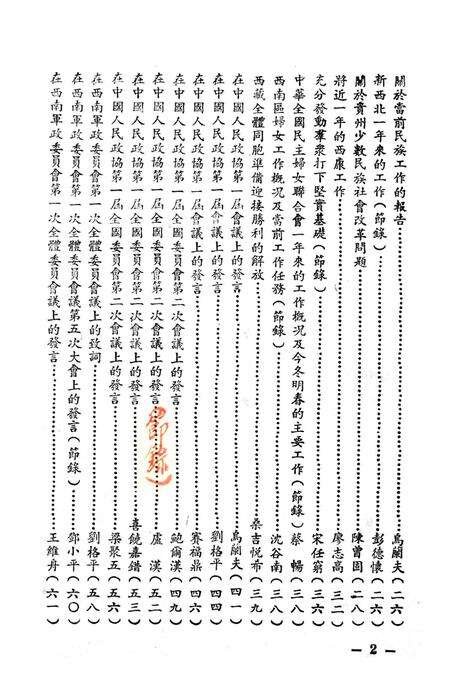 關於當前民族工作的報告……………烏蘭夫(二六)
新西北一年來的工作(節錄)……………彭德懷(二六)
關於貴州少數民族社會改革問題……………陳曾固(二八)
將近一年的西康工作……………廖志高(三二)
充分發動羣衆打下堅實基礎(節錄)……………宋任窮(三六)
中華全國民主婦女聯合會一年來的工作概況及今冬明春的主要工作(節錄)蔡暢(三八)
西南區婦女工作概况及當前工作任務(節錄)……………沈谷南(三八)
西藏全體同胞準備迎接勝利的解放……………桑吉悅希(三九)
在中國人民政協第一屆會議上的發言……………烏蘭夫(四一)
在中國人民政協第一屆會議上的發言……………劉格平(四四)
在中國人民政協第一屆會議上的發言……………賽福鼎(四六)
在中國人民政協第一屆全國委員會第二次會議上的發言……………鮑爾漢(四九)
在中國人民政協第一屆全國委員會第二次會議上的發言(節錄)……………盧漢(五二)
在中國人民政協第一屆全國委員會第二次會議上的發言……………喜饒嘉錯(五三)
在中國人民政協第一屆全國委員會第二次會議上的發言……………梁聚五(五六)
在西南軍政委員會第一次全體委員會議上的致詞……………劉格平(五八)
在西南軍政委員會第一次全體委員會議第五次大會上的發言(節錄)……………鄧小平(六〇)
在西南軍政委員會第一次全體委員會議上的發言……………王維舟(六一)
— 2 —